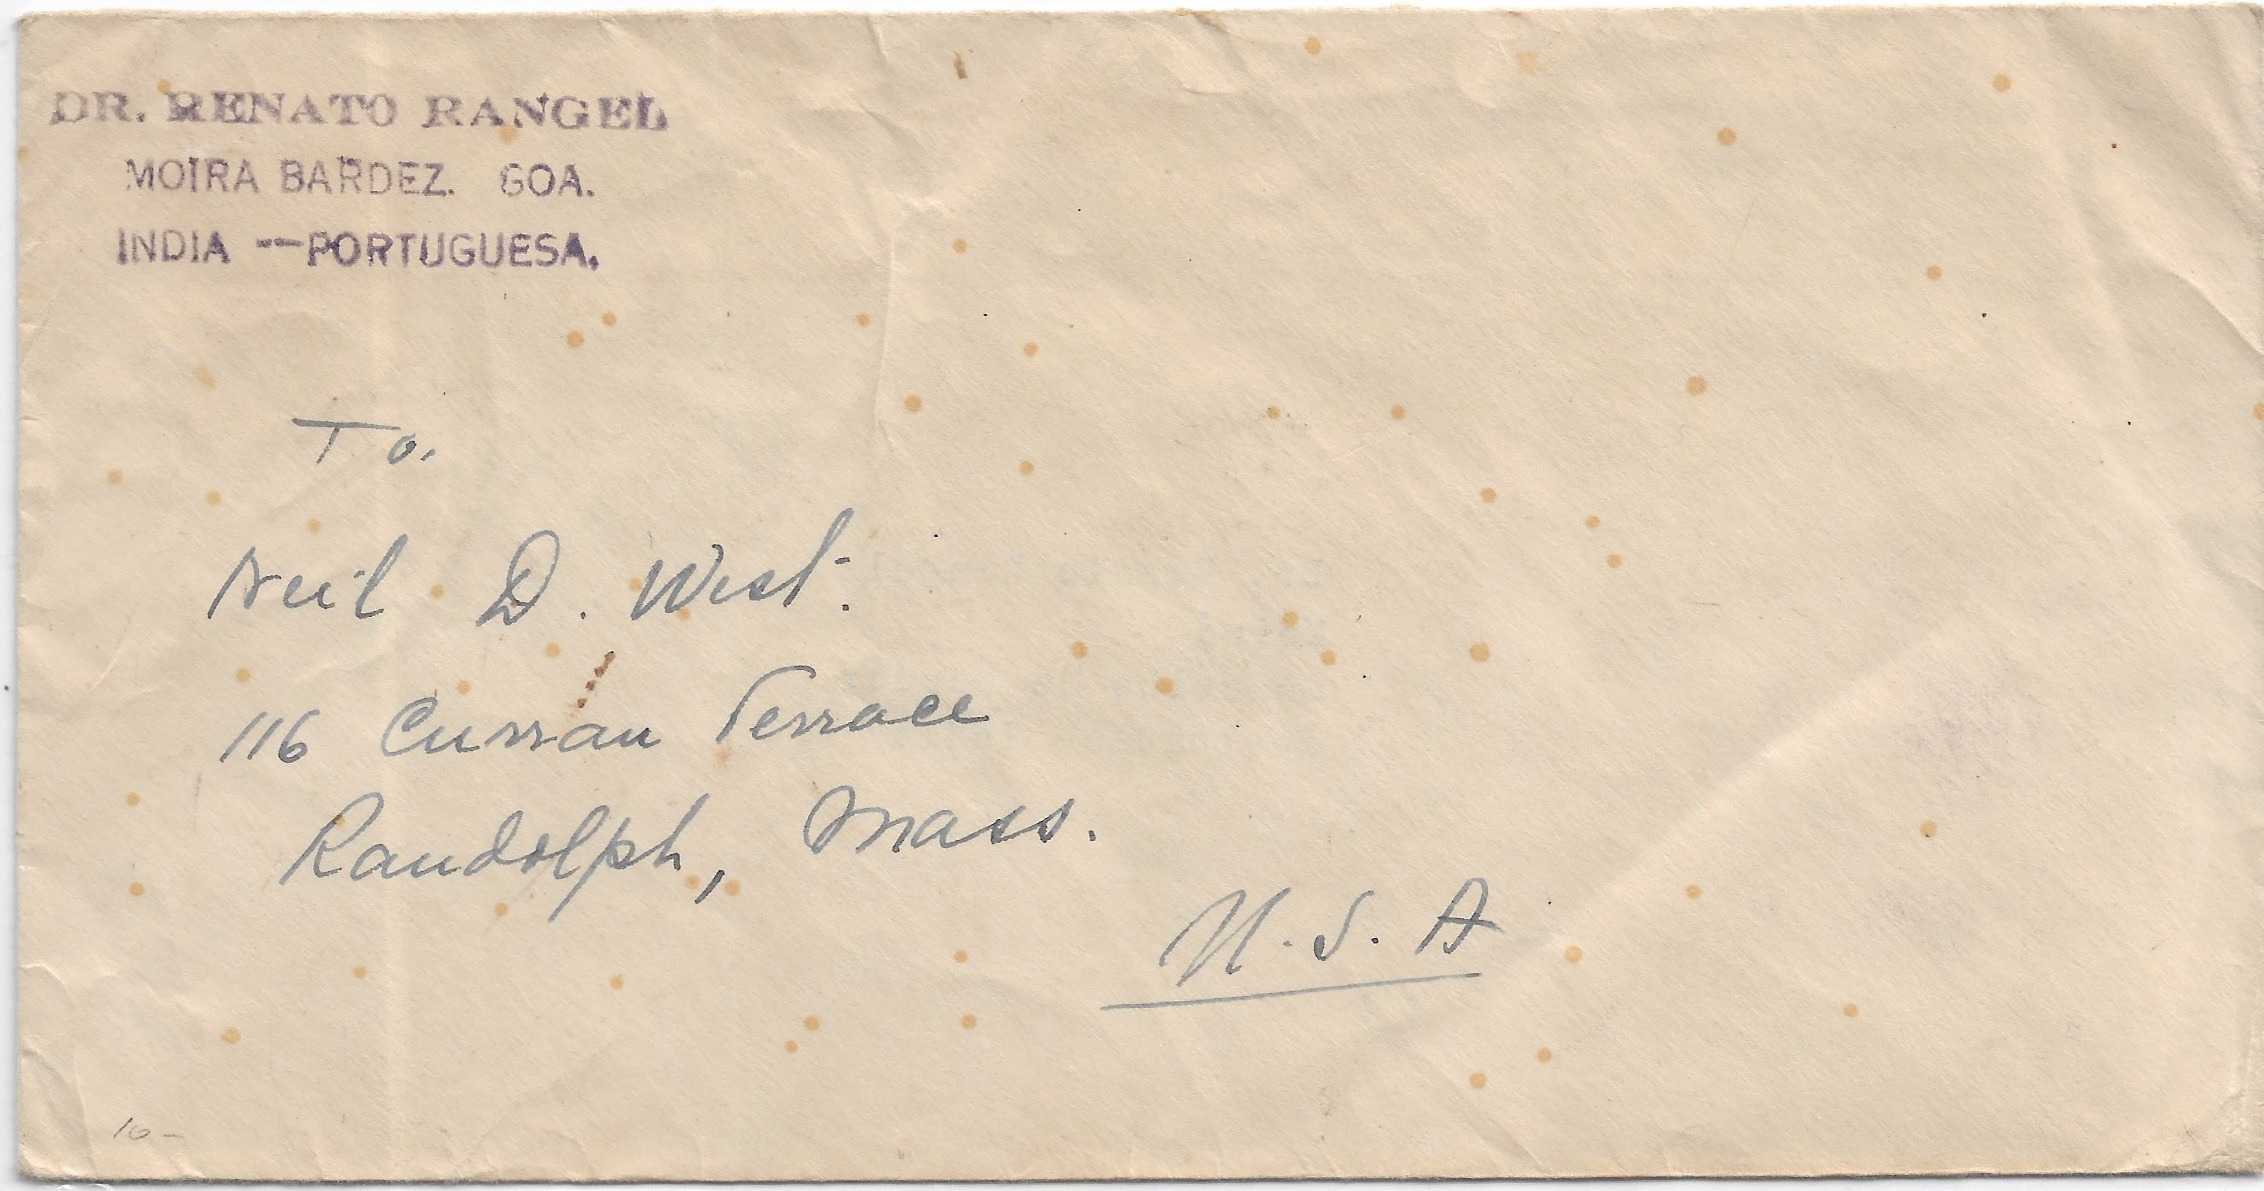 DR. RENATO RANGEL
MOIRA BARDEZ. GOA.
INDIA --PORTUGUESA.
To.
Neil D. West.
116 Curran Terrace
Randolph, Mass.
U.S.A
10-